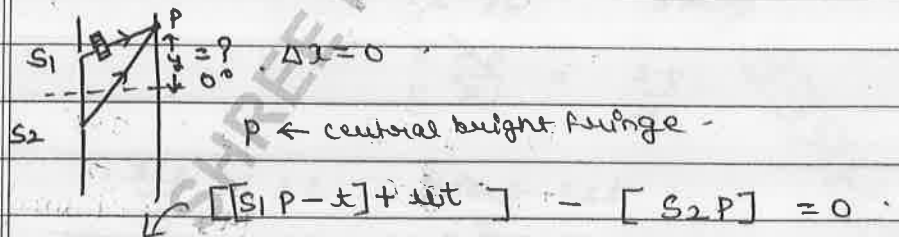 P
S1 y = ? Δx = 0
0°
S2 P ← central bright fringe -
[[S1P - t] + ut] - [S2P] = 0
SHREE